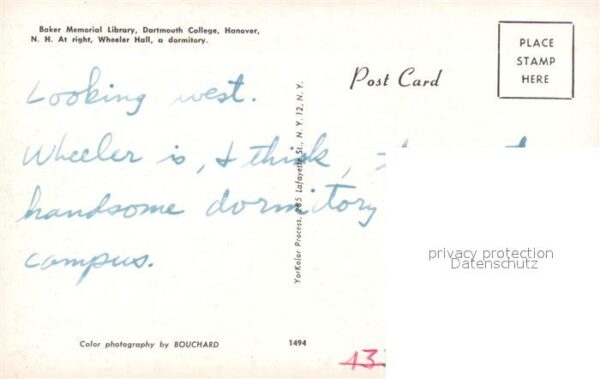 Baker Memorial Library, Dartmouth College, Hanover,
N. H. At right, Wheeler Hall, a dormitory.
PLACE
STAMP
HERE
Post Card
Looking west.
Wheeler is, I think,
handsome dormitory
campus.
YorKolor Process, 285 Lafayette St., N. Y. 12, N. Y.
privacy protection
Datenschutz
Color photography by BOUCHARD
1494
13